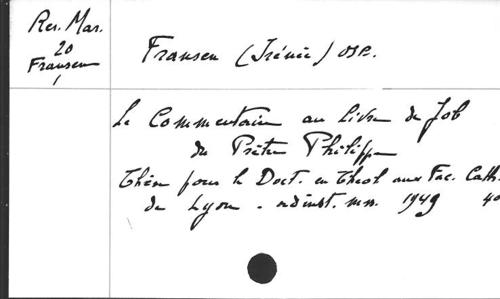 Res. Mar.
20
Fransen
1
Fransen (Irénée) OSB.
Le Commentaire au Livre de Job
du Prêtre Philippe
Thèse pour le Doct. en Théol aux Fac. Cath.
de Lyon. 1949 40